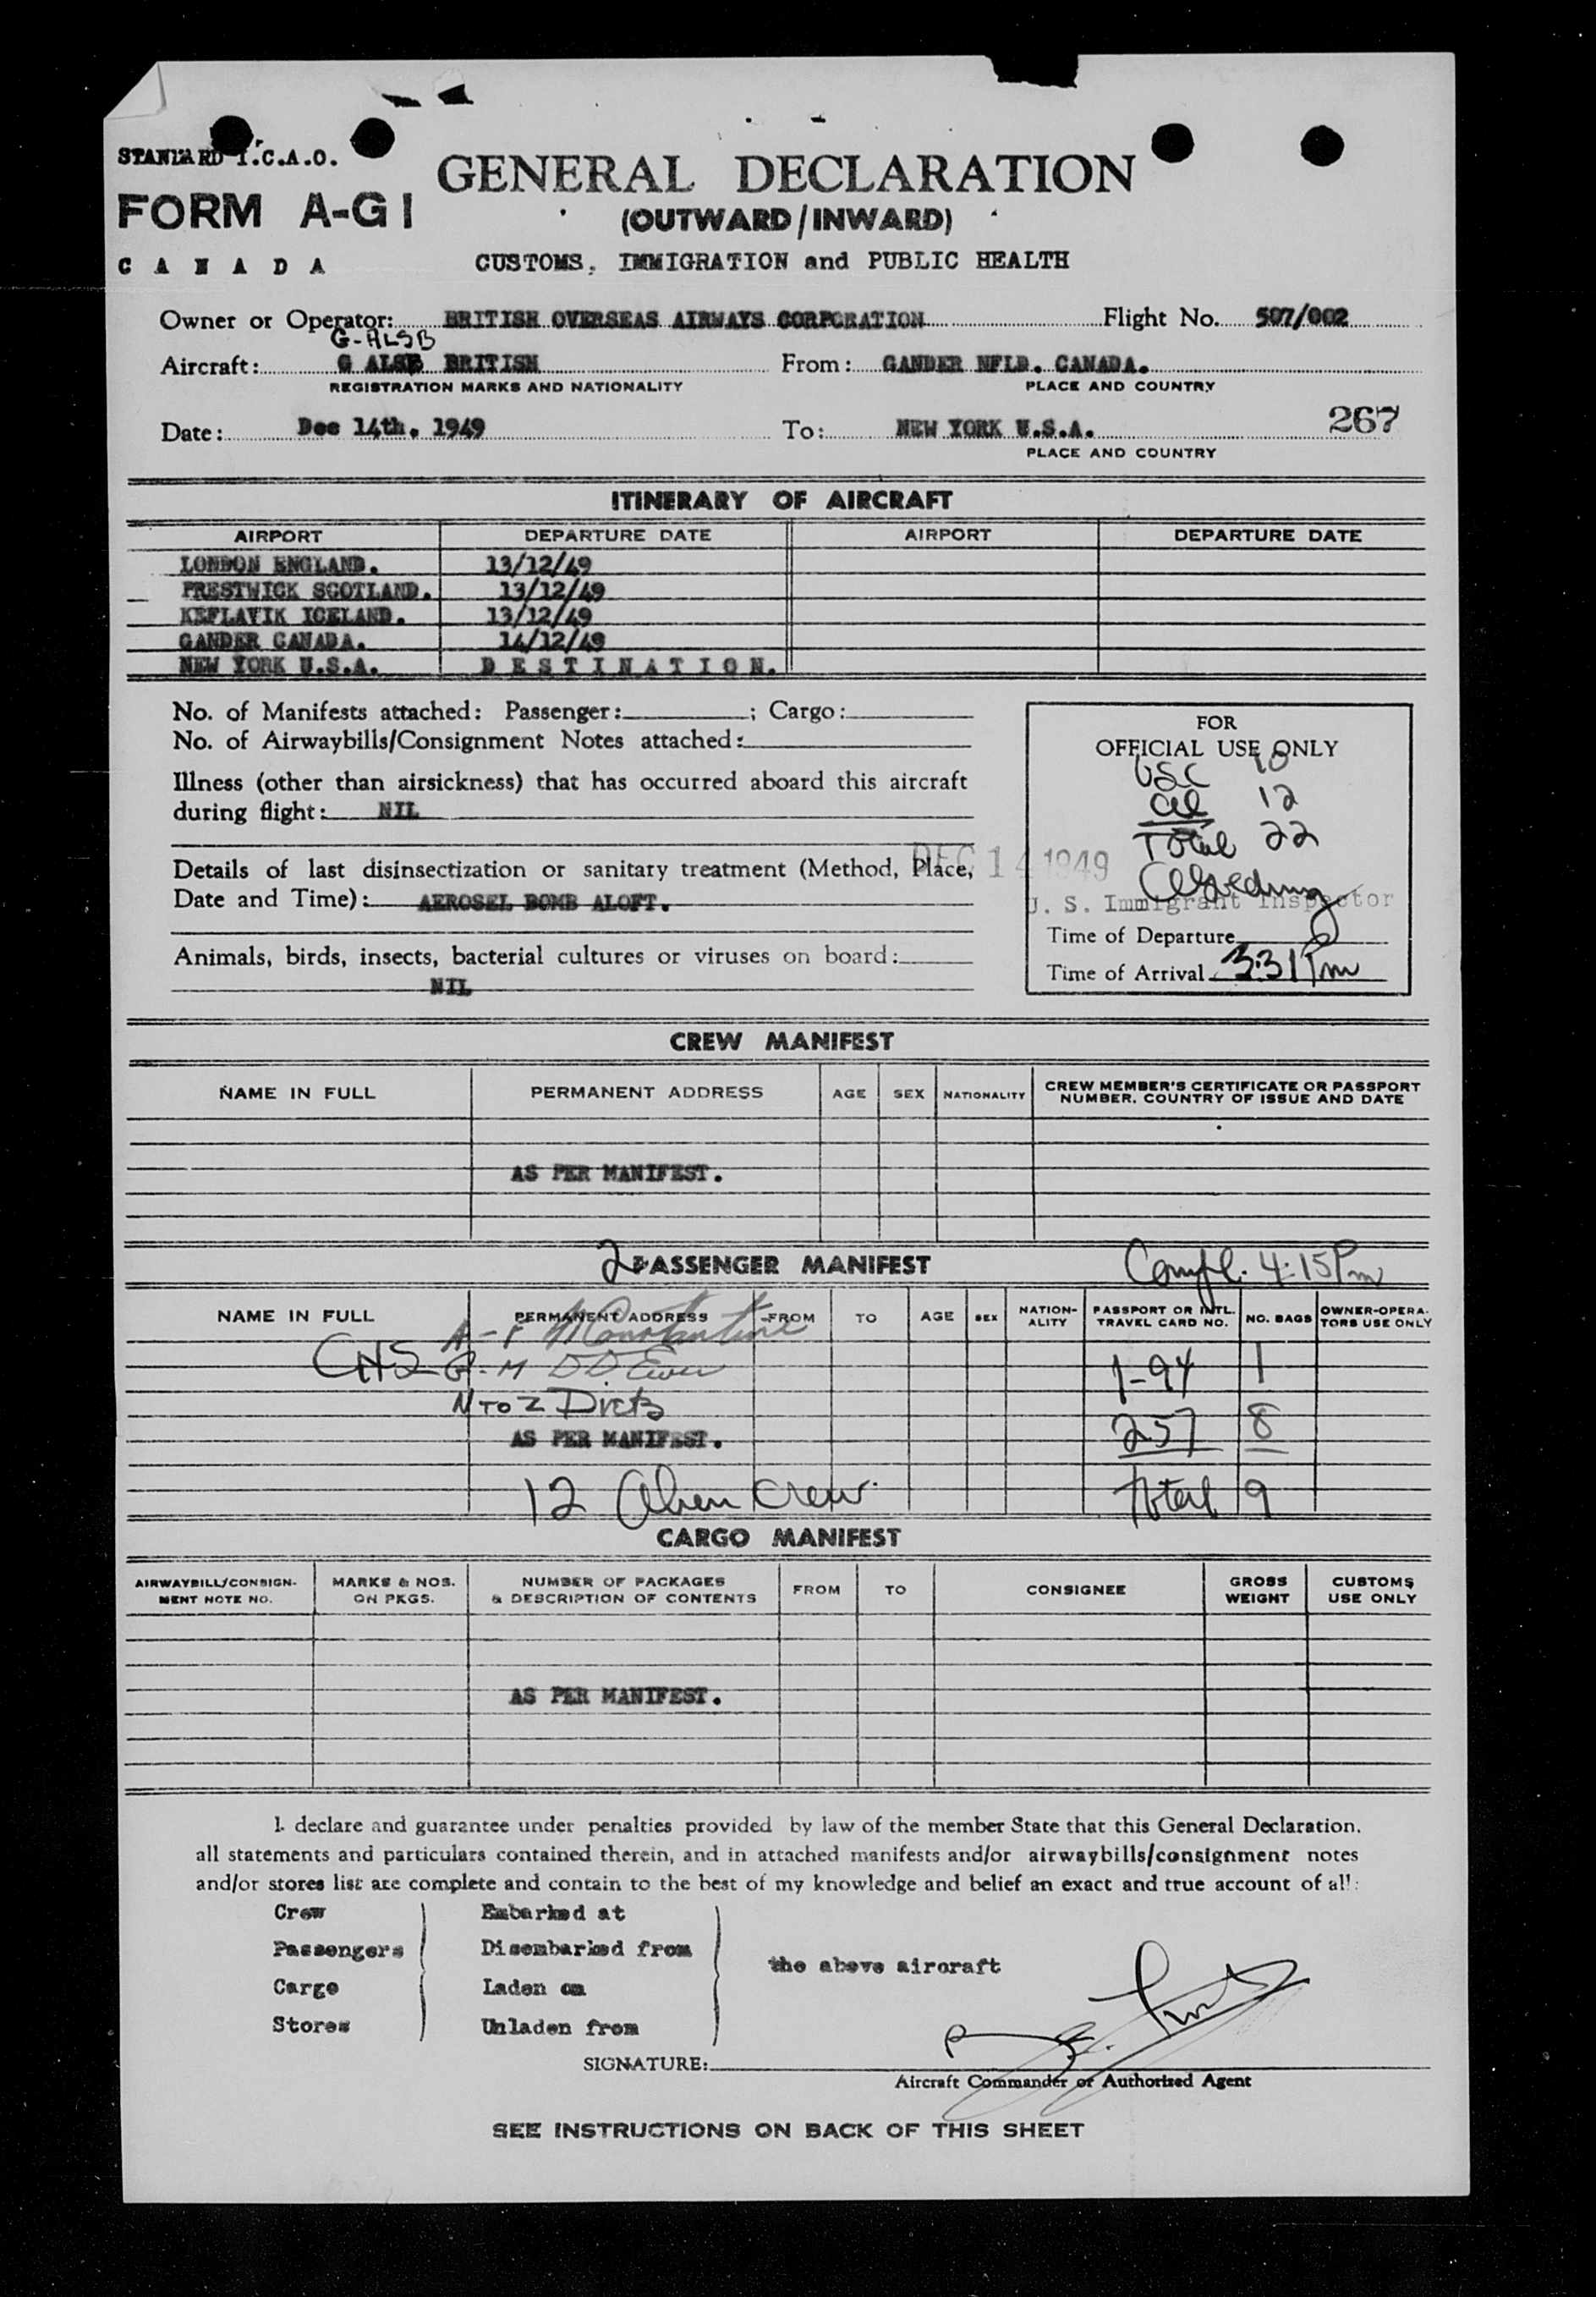 STANDARD I.C.A.O.
FORM A-G1
CANADA
GENERAL DECLARATION
(OUTWARD/INWARD)
CUSTOMS, IMMIGRATION and PUBLIC HEALTH
Owner or Operator: BRITISH OVERSEAS AIRWAYS CORPORATION Flight No. 507/002
G-ALSB
Aircraft: G ALSB BRITISH From: GANDER NFLD. CANADA.
REGISTRATION MARKS AND NATIONALITY PLACE AND COUNTRY
267
Date: Dec 14th. 1949 To: NEW YORK U.S.A.
PLACE AND COUNTRY
ITINERARY OF AIRCRAFT
AIRPORT DEPARTURE DATE AIRPORT DEPARTURE DATE
LONDON ENGLAND. 13/12/49
PRESTWICK SCOTLAND. 13/12/49
KEFLAVIK ICELAND. 13/12/49
GANDER CANADA. 14/12/49
NEW YORK U.S.A. DESTINATION.
No. of Manifests attached: Passenger: ; Cargo:
No. of Airwaybills/Consignment Notes attached:
Illness (other than airsickness) that has occurred aboard this aircraft
during flight: NIL
Details of last disinsectization or sanitary treatment (Method, Place,
Date and Time): AEROSEL BOMB ALOFT.
Animals, birds, insects, bacterial cultures or viruses on board:
NIL
FOR
OFFICIAL USE ONLY
USC 10
al 12
Total 22
DEC 14 1949
U. S. Immigrant Inspector
Time of Departure
Time of Arrival 3:31 Pm
CREW MANIFEST
NAME IN FULL PERMANENT ADDRESS AGE SEX NATIONALITY CREW MEMBER'S CERTIFICATE OR PASSPORT
NUMBER, COUNTRY OF ISSUE AND DATE
AS PER MANIFEST.
2 PASSENGER MANIFEST Compl. 4:15 Pm
NAME IN FULL PERMANENT ADDRESS FROM TO AGE SEX NATION-
ALITY PASSPORT OR INTL.
TRAVEL CARD NO. NO. BAGS OWNER-OPERA-
TORS USE ONLY
A-F Constantine
G-M DD 1-94 1
N TO Z Dietz
AS PER MANIFEST. 257 8
12 Alien Crew. Total 9
CARGO MANIFEST
AIRWAYBILL/CONSIGN-
MENT NOTE NO. MARKS & NOS.
ON PKGS. NUMBER OF PACKAGES
& DESCRIPTION OF CONTENTS FROM TO CONSIGNEE GROSS
WEIGHT CUSTOMS
USE ONLY
AS PER MANIFEST.
I. declare and guarantee under penalties provided by law of the member State that this General Declaration.
all statements and particulars contained therein, and in attached manifests and/or airwaybills/consignment notes
and/or stores list are complete and contain to the best of my knowledge and belief an exact and true account of all:
Crew Embarked at
Passengers Disembarked from
the above aircraft
Cargo Laden on
Stores Unladen from
SIGNATURE:
Aircraft Commander or Authorized Agent
SEE INSTRUCTIONS ON BACK OF THIS SHEET